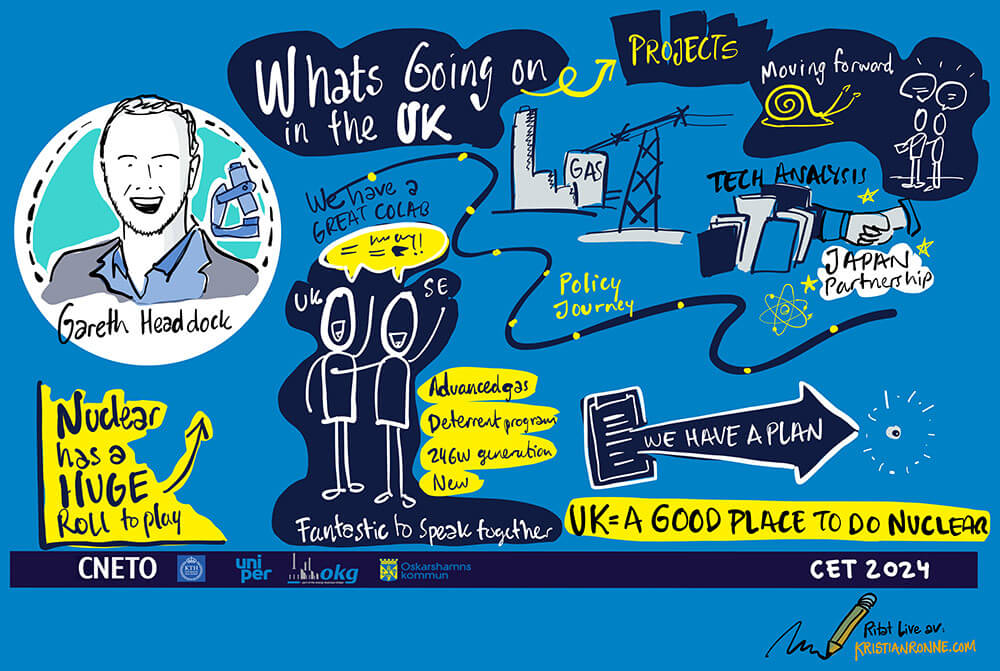 Whats Going on
in the UK
PROJECTS
Moving forward
GAS
TECH ANALYSIS
JAPAN
Partnership
We have a
GREAT COLAB
UK
SE
Policy
Journey
Gareth Headdock
Nuclear
has a
HUGE
Roll to play
Advanced gas
Deterrent program
24GW generation
New
Fantastic to speak together
WE HAVE A PLAN
UK = A GOOD PLACE TO DO NUCLEAR
CNETO
KTH
uni
per
okg
Oskarshamns
kommun
CET 2024
Ritat Live av.
KRISTIANRONNE.COM